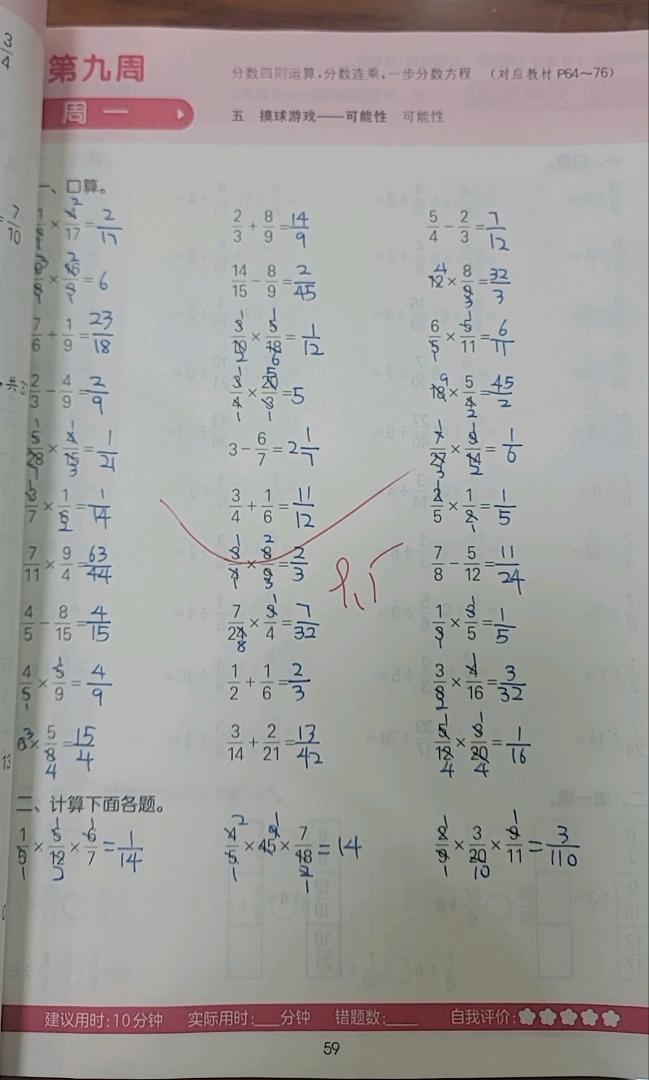 3/4
第九周
分数四则运算,分数连乘,一步分数方程 (对应教材P64~76)
周一
五 摸球游戏——可能性 可能性
一、口算。
7/10
1/8 × 4/17 = 2/17
2/3 + 8/9 = 14/9
5/4 - 2/3 = 7/12
× = 6
14/15 - 8/9 = 2/45
12 × 8/9 = 32/3
7/6 + 1/9 = 23/18
3/10 × 5/18 = 1/12
6/5 × 5/11 = 6/11
2/3 - 4/9 = 2/9
3/4 × 20/3 = 5
18 × 5/4 = 45/2
5/28 × 4/15 = 1/21
3 - 6/7 = 2 1/7
7/27 × 9/14 = 1/6
3/7 × 1/6 = 1/14
3/4 + 1/6 = 11/12
2/5 × 1/2 = 1/5
7/11 × 9/4 = 63/44
3/4 × 8/9 = 2/3
7/8 - 5/12 = 11/24
4/5 - 8/15 = 4/15
7/24 × 3/4 = 7/32
1/3 × 3/5 = 1/5
4/5 × 5/9 = 4/9
1/2 + 1/6 = 2/3
3/8 × 4/16 = 3/32
6 × 5/8 = 15/4
3/14 + 2/21 = 13/42
5/12 × 3/20 = 1/16
13
二、计算下面各题。
1/5 × 5/12 × 6/7 = 1/14
4/5 × 45 × 7/18 = 14
2/9 × 3/20 × 9/11 = 3/110
建议用时:10分钟 实际用时:___分钟 错题数:___ 自我评价:
59